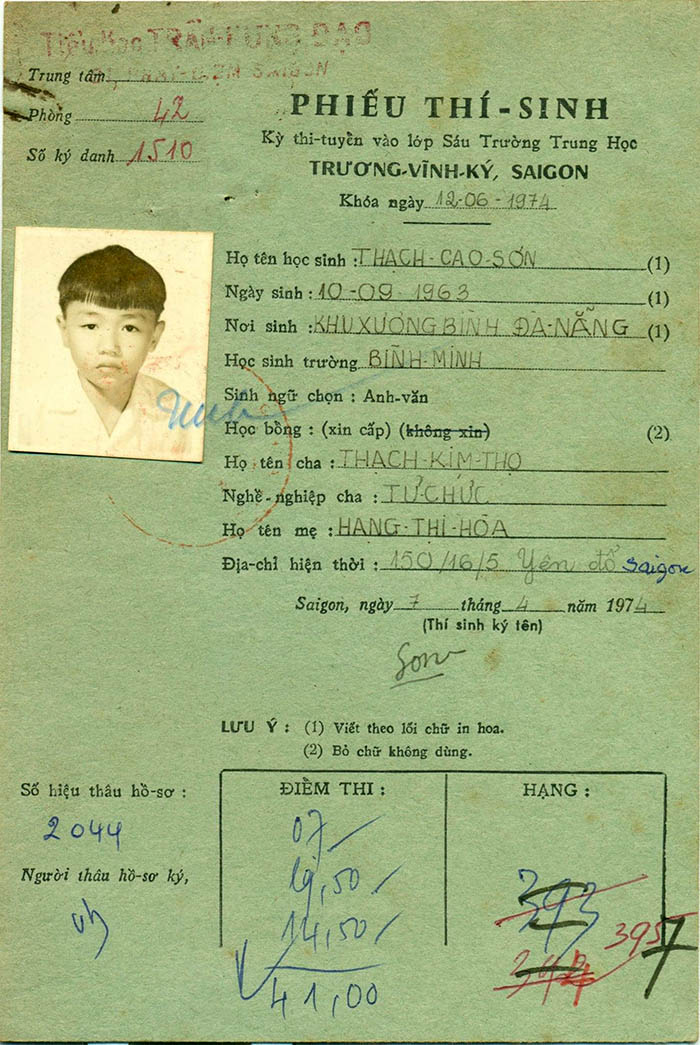 Tiểu Học TRẦN-HƯNG ĐẠO
SAIGON
Trung tâm
Phòng 42
Số ký danh 1510
PHIẾU THÍ-SINH
Kỳ thi-tuyển vào lớp Sáu Trường Trung Học
TRƯƠNG-VĨNH-KÝ, SAIGON
Khóa ngày 12-06-1974
Họ tên học sinh : THẠCH-CAO-SƠN (1)
Ngày sinh : 10-09-1963 (1)
Nơi sinh : KHU XƯƠNG BÌNH ĐÀ-NẴNG (1)
Học sinh trường BÌNH-MINH
Sinh ngữ chọn : Anh-văn
Học bổng : (xin cấp) (không xin) (2)
Họ tên cha : THẠCH-KIM-THỌ
Nghề-nghiệp cha : TƯ CHỨC
Họ tên mẹ : HANG-THỊ-HÒA
Địa-chỉ hiện thời : 150/16/5 Yên đổ Saigon
Saigon, ngày 7 tháng 4 năm 1974
(Thí sinh ký tên)
Sơn
LƯU Ý : (1) Viết theo lối chữ in hoa.
(2) Bỏ chữ không dùng.
Số hiệu thâu hồ-sơ :
2044
Người thâu hồ-sơ ký,
ĐIỂM THI :
07
19,50
14,50
41,00
HẠNG :
393
395
7